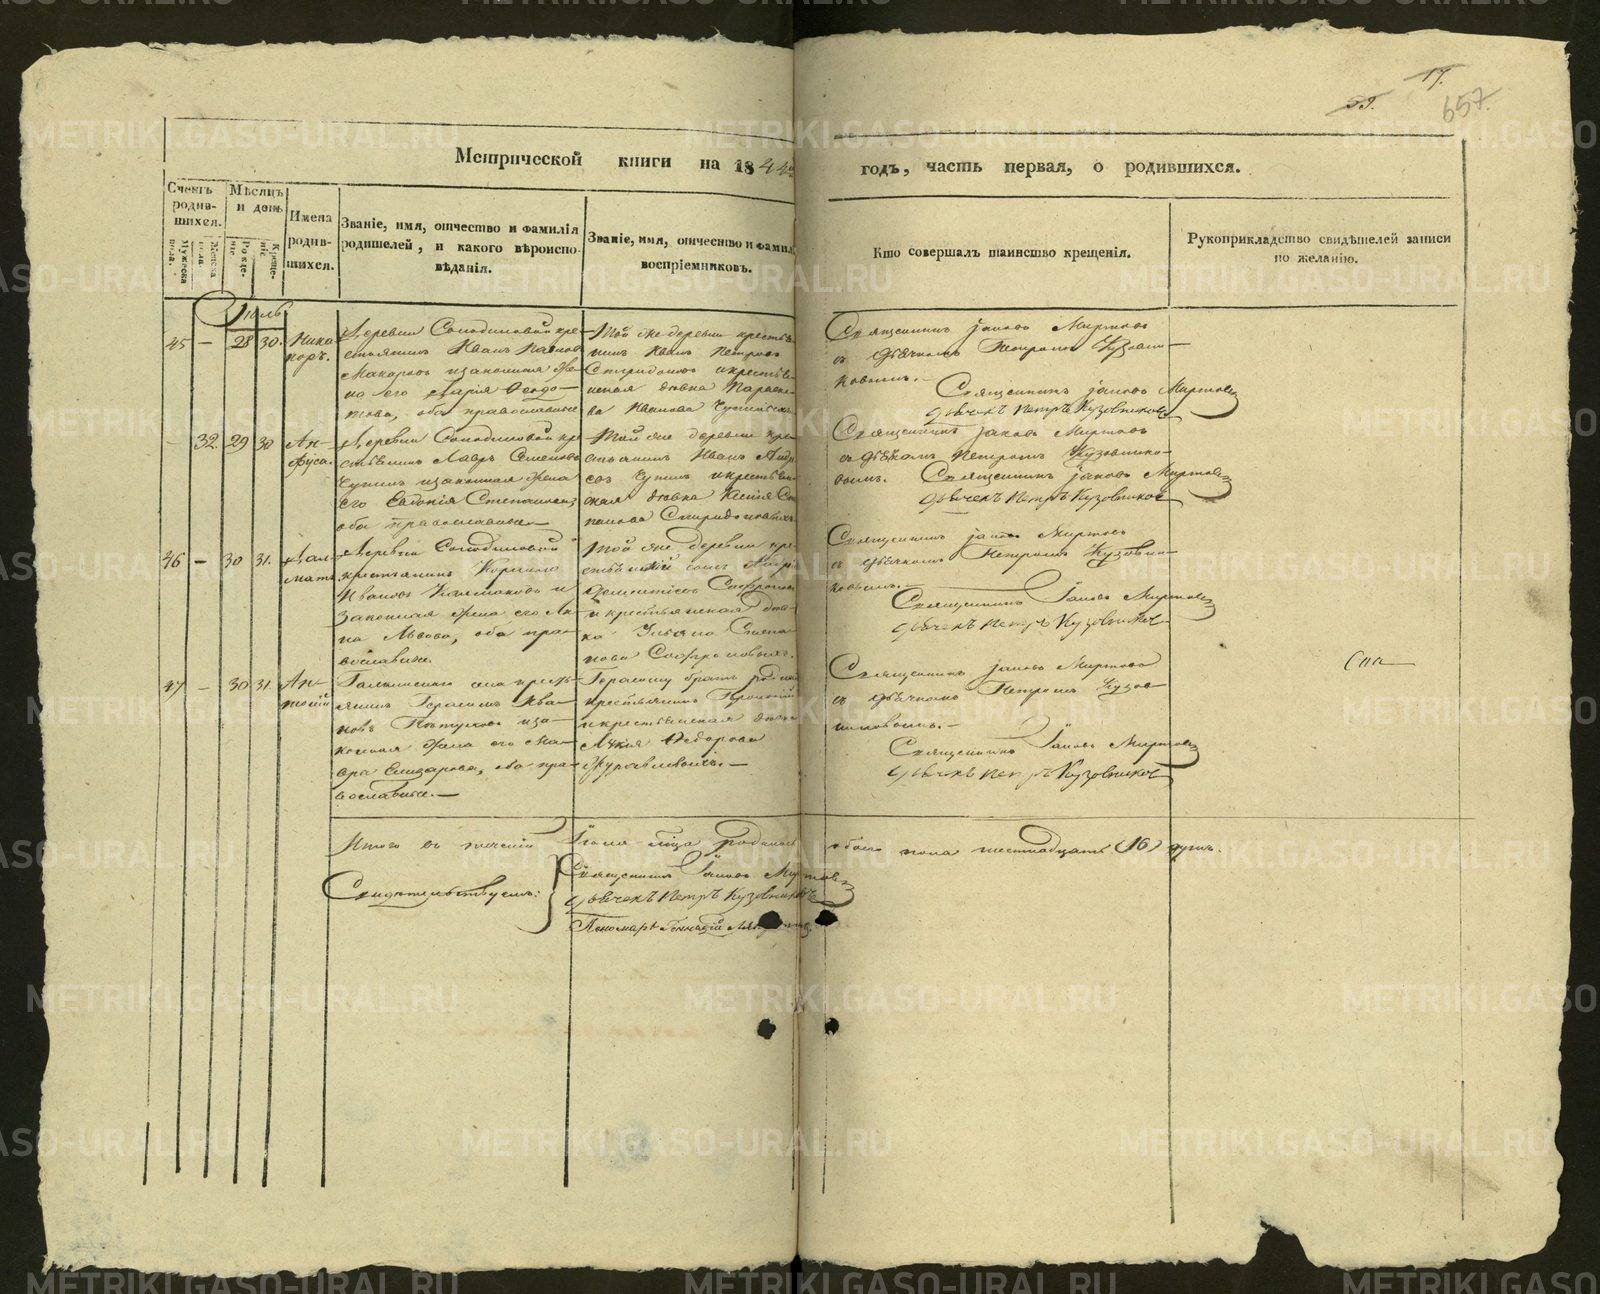 17.
39.
657.
Метрической книги на 1844
годъ, часть первая, о родившихся.
Счетъ родившихся.
Мужеска пола.
Женска пола.
Мѣсяцъ и день
Рожденіе
Крещеніе
Имена родившихся.
Званіе, имя, отчество и фамилія
родителей, и какого вѣроиспо-
вѣданія.
Званіе, имя, отчество и фамил
воспріемниковъ.
Кто совершалъ таинство крещенія.
Рукоприкладство свидѣтелей записи
по желанію.
Іюль
45 — 28 30.
Ника
норъ.
Деревни Солодиловой кре-
стьянинъ Иванъ
Макаровъ и законная же-
на его Марія Ѳеодо-
това, оба православные
Той же деревни крестья
нинъ Иванъ Петровъ
Спиридоновъ и крестья
нская дѣвка Параске-
ва Иванова
Священникъ Іаковъ Миртовъ
съ дьячкомъ Петромъ Кузовни-
ковымъ.—
Священникъ Іаковъ Миртовъ
дьячекъ Петръ Кузовниковъ
32 29 30
Ан-
фуса.
Деревни Солодиловой кре
стьянинъ Лавръ Семеновъ
Чупинъ и законная жена
его Евдокія Степанова,
оба православные.—
Той же деревни кре
стьянинъ Иванъ Андре
евъ Чупинъ и крестьян
ская дѣвка Ксенія Сте
панова Спиридоновыхъ
Священникъ Іаковъ Миртовъ
съ дьячкомъ Петромъ Кузовнико-
вымъ.
Священникъ Іаковъ Миртовъ
дьячекъ Петръ Кузовниковъ
46 — 30 31.
Дал-
матъ
Деревни Солодиловой
крестьянинъ Корнило
Ивановъ Колмаковъ и
законная жена его Ан-
на Львова, оба пра-
вославные.
Той же деревни кре-
стьянскій сынъ
Софроновъ
и крестьянская дѣв-
ка Ульяна Степа-
нова Софроновыхъ.
Священникъ Іаковъ Миртовъ
съ дьячкомъ Петромъ Кузовни-
ковымъ.—
Священникъ Іаковъ Миртовъ
дьячекъ Петръ Кузовниковъ
47 — 30 31.
Ан-
тоній
села кресть-
янинъ Герасимъ Ива-
новъ Пѣтуховъ и за-
конная жена его Ма-
вра Елизарова, оба пра-
вославные.—
Герасиму братъ родной
крестьянинъ
и крестьянская дѣвка
Лукія Ѳедорова
Журавлевыхъ.—
Священникъ Іаковъ Миртовъ
съ дьячкомъ Петромъ Кузов-
никовымъ.—
Священникъ Іаковъ Миртовъ
дьячекъ Петръ Кузовниковъ
Итого въ теченіи Іюля мѣсяца родилось обоего пола шестнадцать (16) душъ.
Свидѣтельствуемъ:
Священникъ Іаковъ Миртовъ
дьячекъ Петръ Кузовниковъ
Пономарь Геннадій